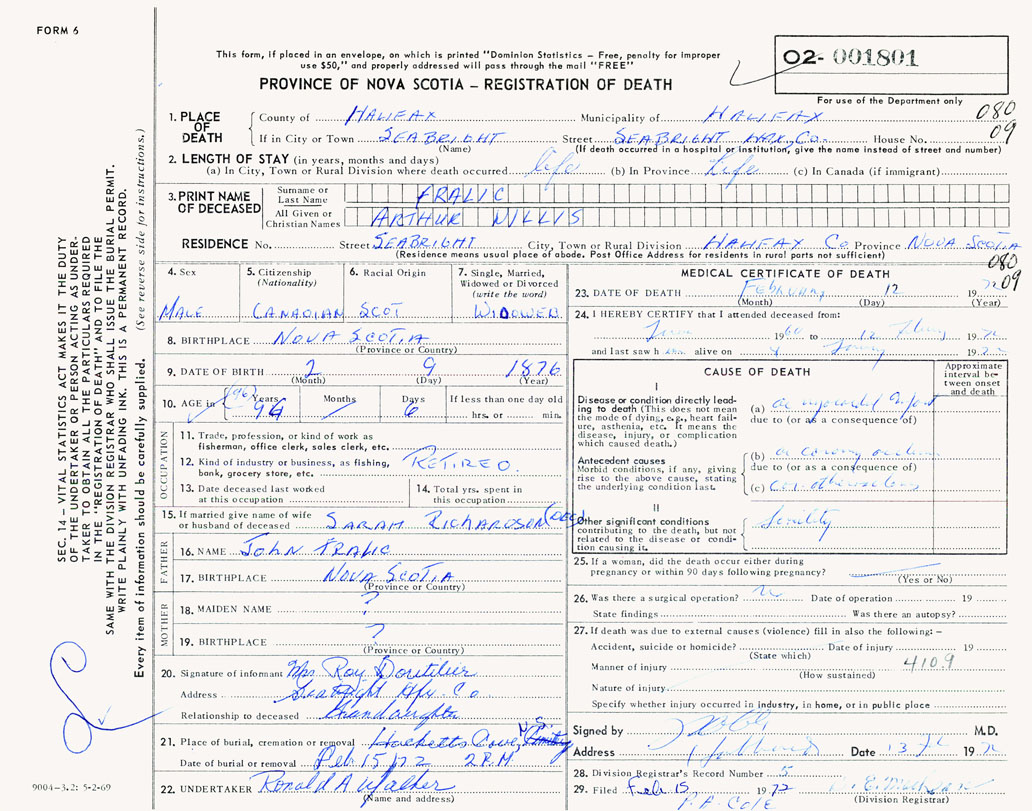 FORM 6
This form, if placed in an envelope, on which is printed "Dominion Statistics – Free, penalty for improper
use $50," and properly addressed will pass through the mail "FREE"
PROVINCE OF NOVA SCOTIA – REGISTRATION OF DEATH
02- 001801
For use of the Department only
080
09
1. PLACE OF DEATH
County of HALIFAX Municipality of HALIFAX
If in City or Town SEABRIGHT Street SEABRIGHT HFX. Co. House No.
(Name) (If death occurred in a hospital or institution, give the name instead of street and number)
2. LENGTH OF STAY (in years, months and days)
(a) In City, Town or Rural Division where death occurred life (b) In Province Life (c) In Canada (if immigrant)
3. PRINT NAME OF DECEASED
Surname or Last Name FRALIC
All Given or Christian Names ARTHUR WILLIS
RESIDENCE No. Street SEABRIGHT City, Town or Rural Division HALIFAX Co Province NOVA SCOTIA
(Residence means usual place of abode. Post Office Address for residents in rural parts not sufficient)
080
09
4. Sex
MALE
5. Citizenship
(Nationality)
CANADIAN
6. Racial Origin
SCOT
7. Single, Married,
Widowed or Divorced
(write the word)
WIDOWER
8. BIRTHPLACE NOVA SCOTIA
(Province or Country)
9. DATE OF BIRTH 2 9 1876
(Month) (Day) (Year)
10. AGE in Years Months Days If less than one day old
(96) 96 6 hrs. or min.
OCCUPATION
11. Trade, profession, or kind of work as
fisherman, office clerk, sales clerk, etc.
12. Kind of industry or business, as fishing,
bank, grocery store, etc. RETIRED.
13. Date deceased last worked
at this occupation
14. Total yrs. spent in
this occupation
15. If married give name of wife
or husband of deceased SARAH RICHARDSON (DEC)
FATHER
16. NAME JOHN FRALIC
17. BIRTHPLACE NOVA SCOTIA
(Province or Country)
MOTHER
18. MAIDEN NAME ?
19. BIRTHPLACE ?
(Province or Country)
20. Signature of informant Mrs Roy Boutilier
Address Seabright Hfx. Co.
Relationship to deceased Grandaughter
21. Place of burial, cremation or removal Hacketts Cove, N.S.
Date of burial or removal Feb 15/72 2 P.M.
22. UNDERTAKER Ronald A Walker
(Name and address)
MEDICAL CERTIFICATE OF DEATH
23. DATE OF DEATH FEBRUARY 12 1972
(Month) (Day) (Year)
24. I HEREBY CERTIFY that I attended deceased from:
1960 to 12 19 72
and last saw h alive on 19
CAUSE OF DEATH
Approximate
interval be-
tween onset
and death
I
Disease or condition directly lead-
ing to death (This does not mean
the mode of dying, e.g., heart fail-
ure, asthenia, etc. It means the
disease, injury, or complication
which caused death.)
(a) ac myocardial infarct
due to (or as a consequence of)
Antecedent causes
Morbid conditions, if any, giving
rise to the above cause, stating
the underlying condition last.
(b) ac coronary occlusion
due to (or as a consequence of)
(c)
II
Other significant conditions
contributing to the death, but not
related to the disease or condi-
tion causing it.
Senility
25. If a woman, did the death occur either during
pregnancy or within 90 days following pregnancy?
(Yes or No)
26. Was there a surgical operation? Date of operation 19
State findings Was there an autopsy?
27. If death was due to external causes (violence) fill in also the following: –
Accident, suicide or homicide? Date of injury 19
(State which)
Manner of injury 4109
(How sustained)
Nature of injury
Specify whether injury occurred in industry, in home, or in public place
Signed by M.D.
Address Hubbards Date 13 19 72
28. Division Registrar's Record Number 5
29. Filed Feb 15, 1972
(Division Registrar)
SEC. 14 – VITAL STATISTICS ACT MAKES IT THE DUTY
OF THE UNDERTAKER OR PERSON ACTING AS UNDER-
TAKER TO OBTAIN ALL THE PARTICULARS REQUIRED
IN THE "REGISTRATION OF DEATH" AND TO FILE THE
SAME WITH THE DIVISION REGISTRAR WHO SHALL ISSUE THE BURIAL PERMIT.
WRITE PLAINLY WITH UNFADING INK. THIS IS A PERMANENT RECORD.
Every item of information should be carefully supplied. (See reverse side for instructions.)
9004–3.2: 5-2-69